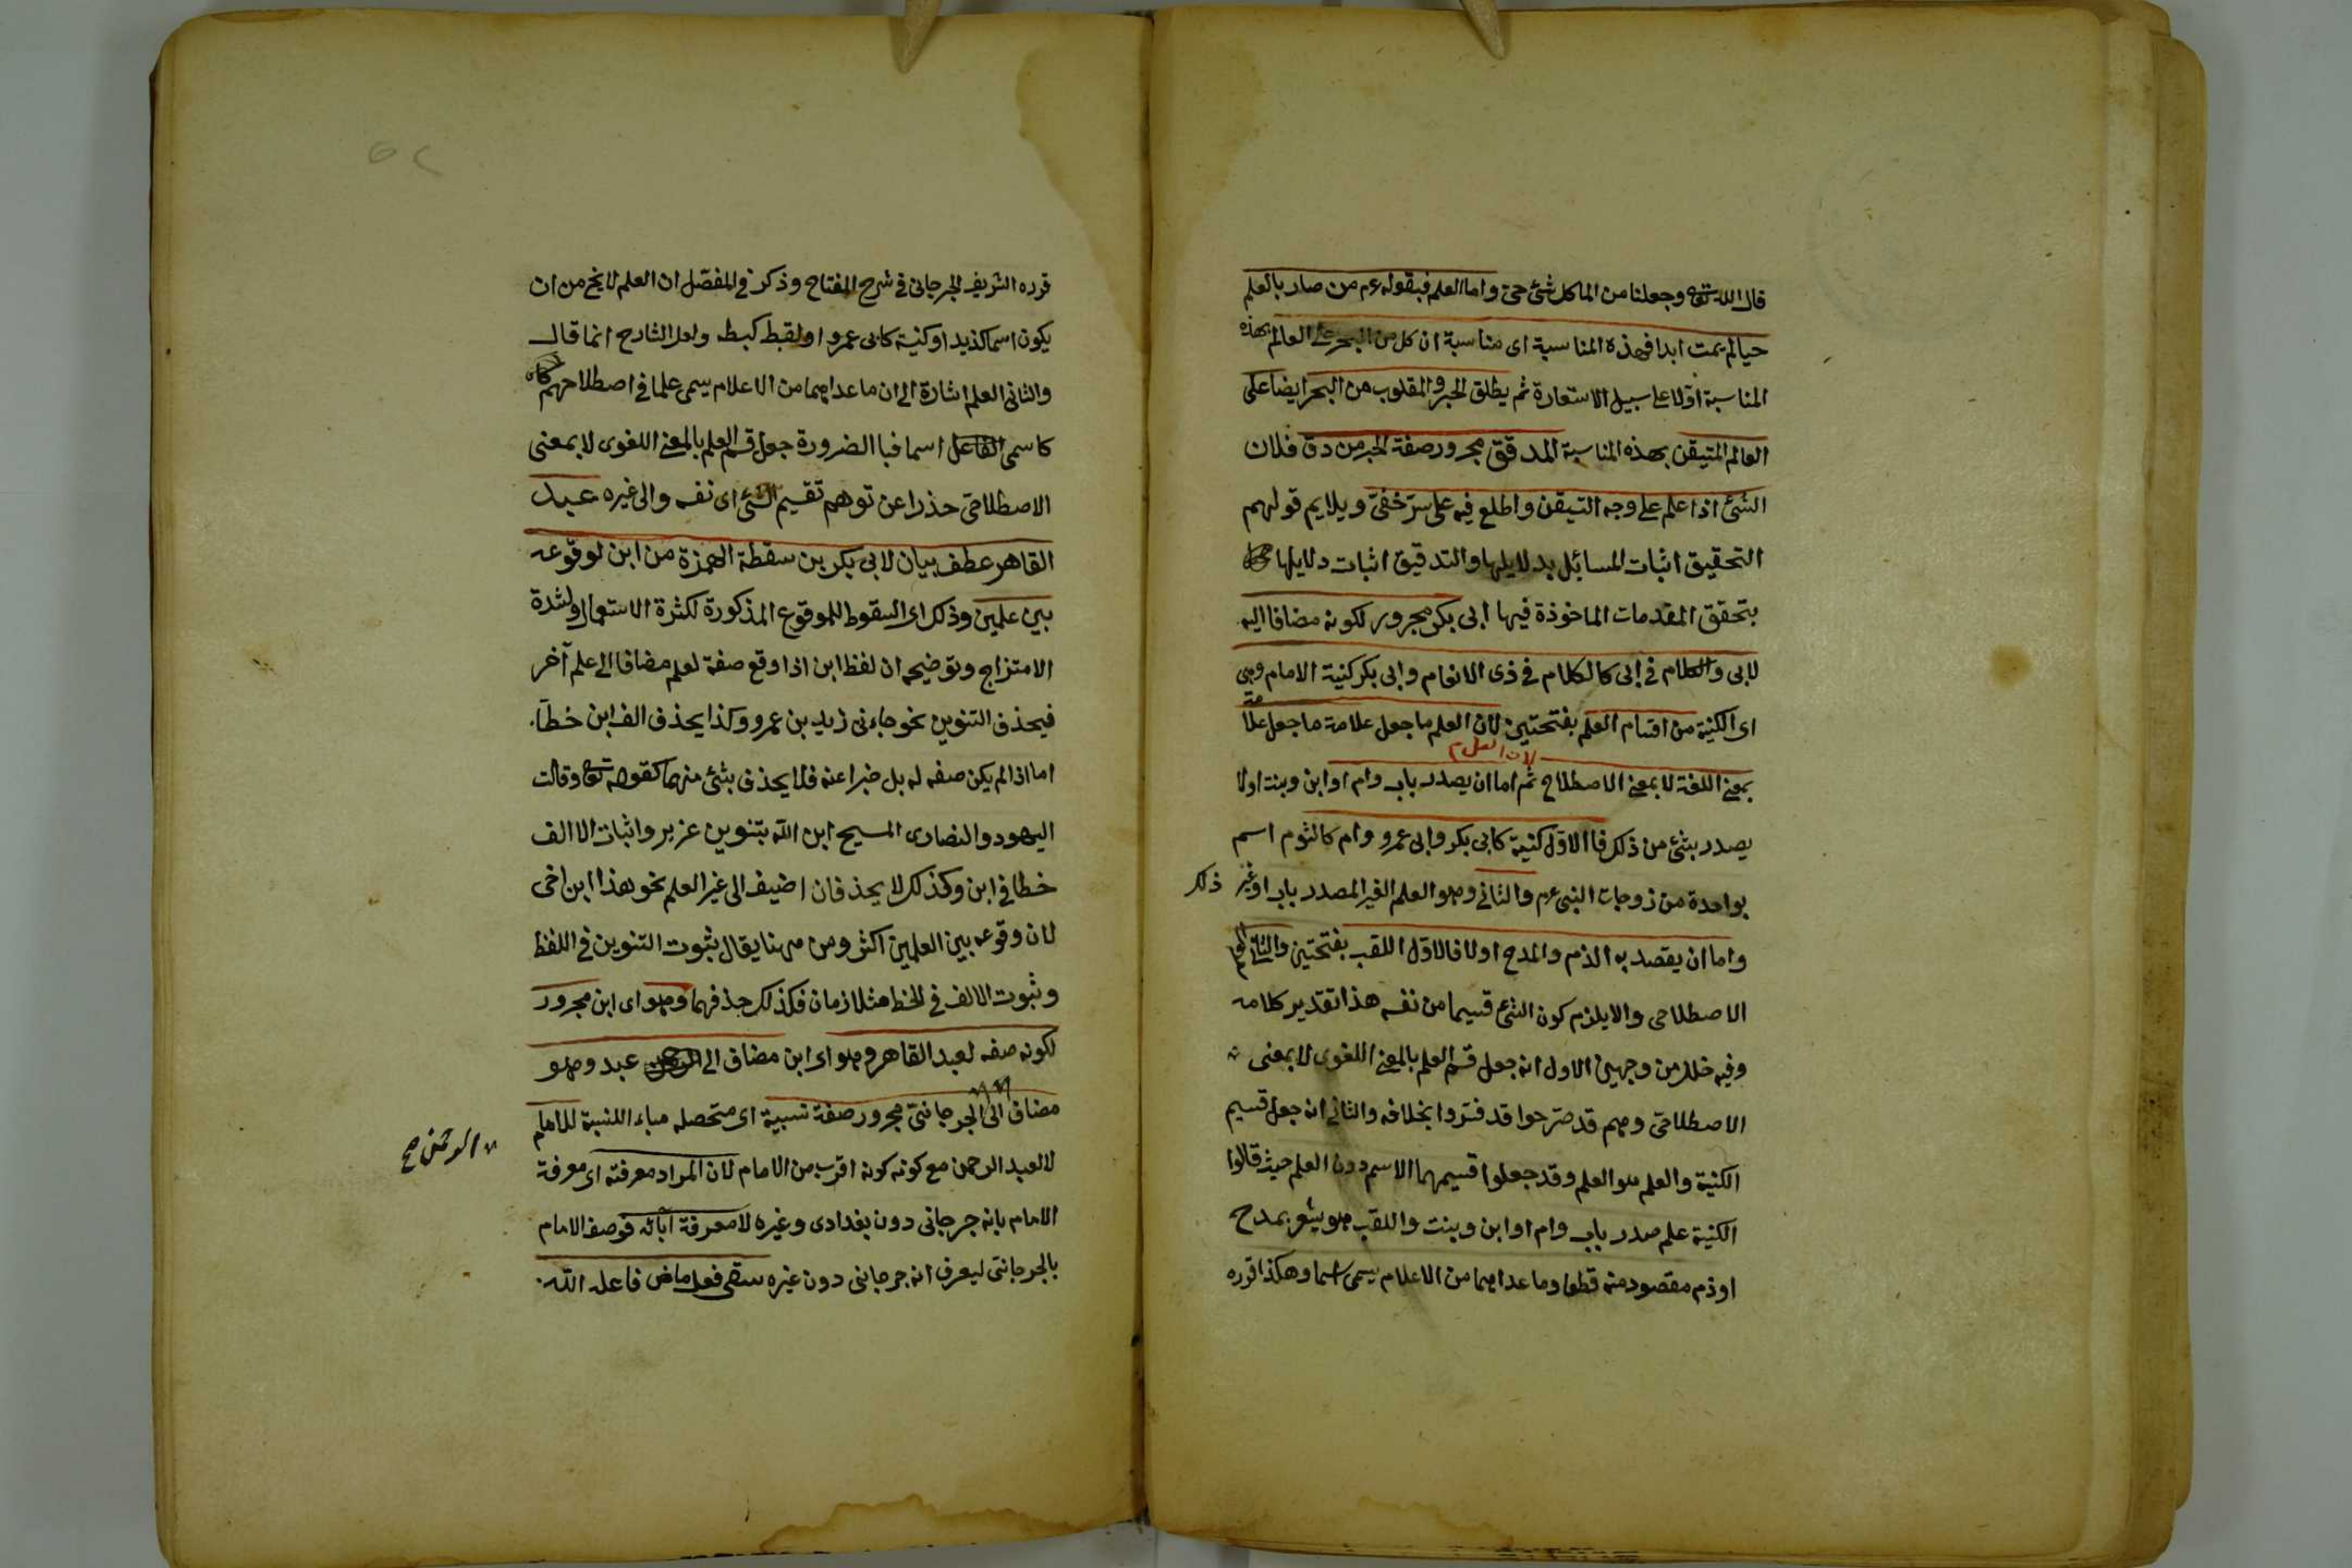 قال الله تعالى وجعلنا من الماء كل شئ حي واما العلم فبقوله عم من صار بالعلم
حيا لم يمت ابدا فهذه المناسبة اى مناسبة ان كل من البحر على العالم بهذه
المناسبة اولا على سبيل الاستعارة ثم يطلق الحبر والمقلوب من البحر ايضا على
العالم المتيقن بهذه المناسبة المدقق مجرور صفة لحبر من دق فلان
الشئ اذا علم على وجه التيقن واطلع فيه على سر خفي ويلايم قولهم
التحقيق اثبات المسائل بدلايلها والتدقيق اثبات دلايلها
بتحقق المقدمات الماخوذة فيها ابى بكر مجرور لكونه مضافا اليه
لابى والكلام فى ابى كالكلام فى ذى الانعام وابى بكر كنية الامام وهى
اى الكنية من اقسام العلم بفتحتين لان العلم ما جعل علامة ما جعل علامة
لان العلم
بمعنى اللغة لا بمعنى الاصطلاح ثم اما ان يصدر باب وام او ابن وبنت اولا
يصدر بشئ من ذلك فا الاول كنية كابى بكر وابى عمرو وام كالثوم اسم
بواحدة من زوجات النبى عم والثانى وهو العلم الغير المصدر باب او غير ذلك
واما ان يقصد به الذم والمدح اولا فالاول اللقب بفتحتين والثانى العلم
الاصطلاحى والا يلزم كون الشئ قسيما من نفسه هذا تقدير كلامه
وفيه خلل من وجهين الاول انه جعل قسم العلم بالمعنى اللغوى لا بمعنى
الاصطلاحى وهم قد صرحوا قد فسروا بخلافه والثانى انه جعل قسيم
الكنية والعلم هو العلم وقد جعلوا قسيمهما الاسم دون العلم حيث قالوا
الكنية علم صدر باب وام او ابن وبنت واللقب هو يشعر بمدح
او ذم مقصود منه قطعا وما عداهما من الاعلام يسمى اسما وهكذا قرره
قرره الشريف الجرجانى فى شرح المفتاح وذكر فى المفصل ان العلم لا يخ من ان
يكون اسما كزيد او كنية كابى عمرو او لقبط كبط ولعل الشارح انما قال
والثانى العلم اشارة الى ان ما عداهما من الاعلام يسمى علما فى اصطلاحهم
كا سمى الفاعل اسما فبا الضرورة جعل قسم العلم بالمعنى اللغوى لا بمعنى
الاصطلاحى حذرا عن توهم تقسيم الشئ اى نفسه والى غيره عبد
القاهر عطف بيان لابى بكر بن سقطة الهمزة من ابن لوقوعه
بين علمين وذلك اى السقوط للموقوع المذكورة لكثرة الاستعمال ولشدة
الامتزاج وتوضيحه ان لفظ ابن اذا وقع صفة لعلم مضافا الى علم آخر
فيحذف التنوين نحو جاءنى زيد بن عمرو وكذا يحذف الف ابن خطا
اما اذا لم يكن صفه له بل خبرا عنه فلا يحذف بشئ منهما كقوله تعالى وقالت
اليهود والنصارى المسيح ابن الله بتنوين عزير واثبات الا الف
خطا فى ابن وكذلك لا يحذف ان اضيف الى غير العلم نحو هذا ابن اخى
لان وقوعه بين العلمين اكثر ومن ههنا يقال ثبوت التنوين فى اللفظ
وثبوت الالف فى الخط متلازمان فكذلك حذفهما وهو اى ابن مجرور
لكونه صفه لعبد القاهر وهو اى ابن مضاف الى عبد وهو
مضاف الى الجرجانى مجرور صفة نسبية اى متحصله بياء النسبة للامام
الرحمن صح
لا لعبد الرحمن مع كونه كونه اقرب من الامام لان المراد معرفته اى معرفة
الامام بانه جرجانى دون بغدادى وغيره لا معرفة آبائه فوصف الامام
بالجرجانى ليعرف انه جرجانى دون غيره سقى فعل ماض فاعله الله